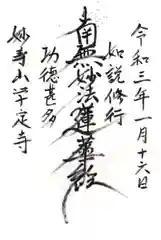 令和三年一月十六日
如説修行
南無妙法蓮華経
功徳甚多
妙寿山学定寺